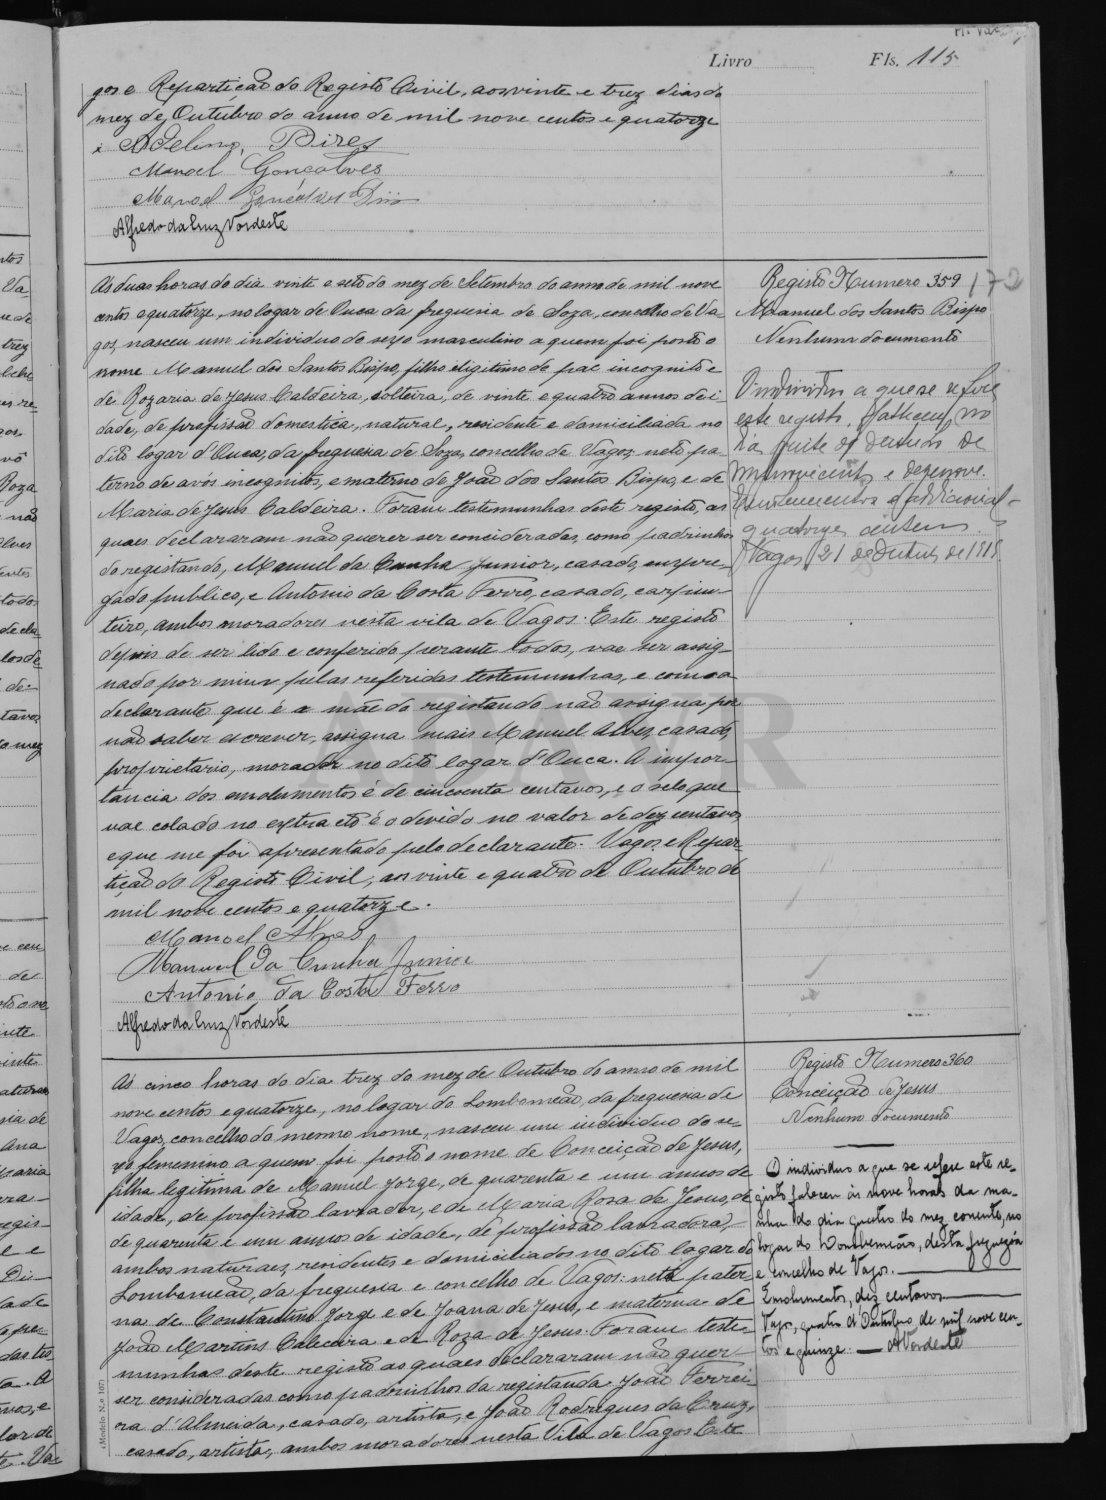 Livro Fls. 115
gos e Repartição do Registo Civil, aos vinte e trez dias do
mez de Outubro do anno de mil nove centos e quatorze
x Adelino Pires
Manoel Gonçalves
Manoel
Alfredo da Cruz Nordeste
Ás duas horas do dia vinte e sete do mez de Setembro do anno de mil nove
centos e quatorze, no logar de Ouca da freguesia de Soza, concelho de Va-
gos, nasceu um individuo do sexo masculino a quem foi posto o
nome Manuel dos Santos Bispo, filho illigitimo de pae incognito e
de Rozaria de Jesus Caldeira, solteira, de vinte e quatro annos de i-
dade, de profissão domestica, natural, residente e domiciliada no
dito logar d'Ouca, da freguesia de Soza, concelho de Vagos, neto pa-
terno de avós incognitos, e materno de João dos Santos Bispo, e de
Maria de Jesus Caldeira. Foram testemunhas deste registo, as
quaes declararam não querer ser concideradas, como padrinhos
do registando, Manuel da Cunha Junior, casado, empre-
gado publico, e Antonio da Costa Ferro, casado, carpin-
teiro, ambos moradores nesta vila de Vagos. Este registo
depois de ser lido e conferido perante todos, vae ser assig-
nado por mim pelas referidas testemunhas, e como a
declarante que é a mãe do registando não assigna por
não saber escrever, assigna mais Manuel Alves, casado,
proprietario, morador no dito logar d'Ouca. A impor-
tancia dos emolumentos é de cincoenta centavos, e o selo que
vae colado no extracto é o devido no valor de dez centavos
e que me foi apresentado pelo declarante. Vagos e Repar-
tição do Registo Civil, aos vinte e quatro de Outubro de
mil nove centos e quatorze.
Manoel Alves
Manuel da Cunha Junior
Antonio da Costa Ferro
Alfredo da Cruz Nordeste
Registo Numero 359 172
Manuel dos Santos Bispo
Nenhum documento
O individuo a que se refere
este registo, falleceu no
dia vinte de de
mil novecentos e dezenove.
Emolumentos e addicional-
quatorze centavos
Vagos, 21 de de 1919.
Ás cinco horas do dia trez do mez de Outubro do anno de mil
nove centos e quatorze, no logar do Lombomeão, da freguesia de
Vagos, concelho do mesmo nome, nasceu um individuo do se-
xo femenino a quem foi posto o nome de Conceição de Jesus,
filha legitima de Manuel Jorge, de quarenta e um annos de
idade, de profissão lavrador, e de Maria Rosa de Jesus, de
de quarenta e um annos de idade, de profissão lavradora,
ambos naturaes, residentes e domiciliados no dito logar do
Lombomeão, da freguesia e concelho de Vagos: neta pater-
na de Constantino Jorge e de Joana de Jesus, e materna de
João Martins Caleceira e de Roza de Jesus. Foram teste-
munhas deste registo as quaes declararam não quer
ser consideradas como padrinhos da registanda. João Ferrei-
ra d'Almeida, casado, artista, e João Rodrigues da Cruz,
casado, artista, ambos moradores nesta Vila de Vagos Este
Registo Numero 360
Conceição de Jesus
Nenhum documento
O individuo a que se refere este re-
gisto faleceu ás nove horas da ma-
nhã do dia quatro do mez corrente, no
logar do Lombomeão, desta freguezia
e concelho de Vagos.
Emolumentos, dez centavos
Vagos, quatro d'Outubro de mil nove cen-
tos e quinze. — ANordeste
(Modelo N.o 107)